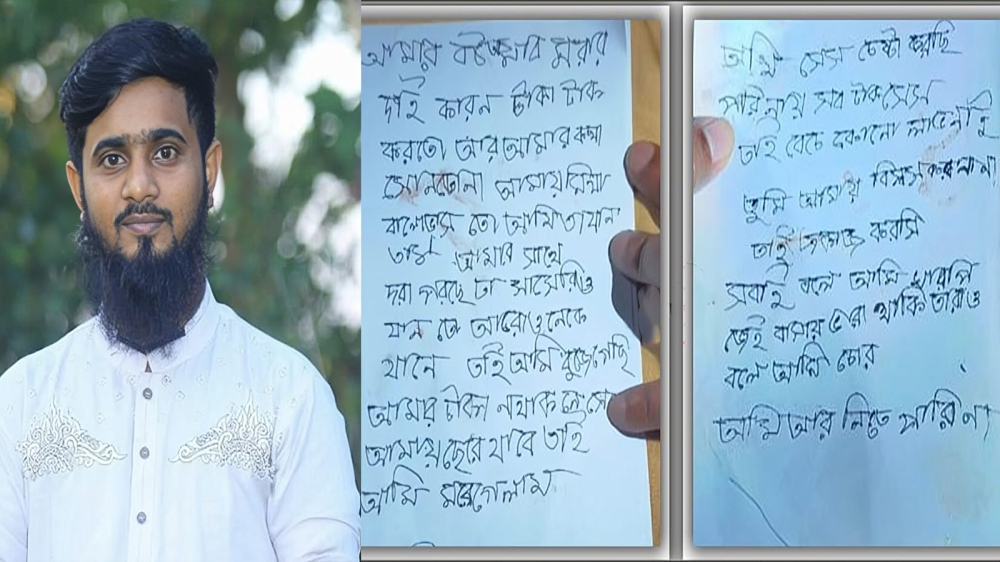 আমার বউআমার মরার
দাই কারন টাকা টাক
করতো আর আমার কথা
সোনতোনা আমায় মিথ্যা
বলে তো আমি তা যানা
তাসু আমার সাথে
দরা পরছে টা সাসোরিও
যান তে আরো ওনেকে
যানে তাই আমি বুজেগেছি
আমার টাকা নথাক লে সে
আমায় ছেরে যাবে তাই
আমি মরেগেলাম
আমি সেস চেষ্টা করছি
পারি নায় সব টাক সেস
তাই বেচে লাব নাই
তুমি আমায় বিসসকরলানা
তাই করসি
সবাই বলে আমি খারাপ
জেই বাসায় থাকি তারাও
বলে আমি চোর
আমি আর নিতে পারি না